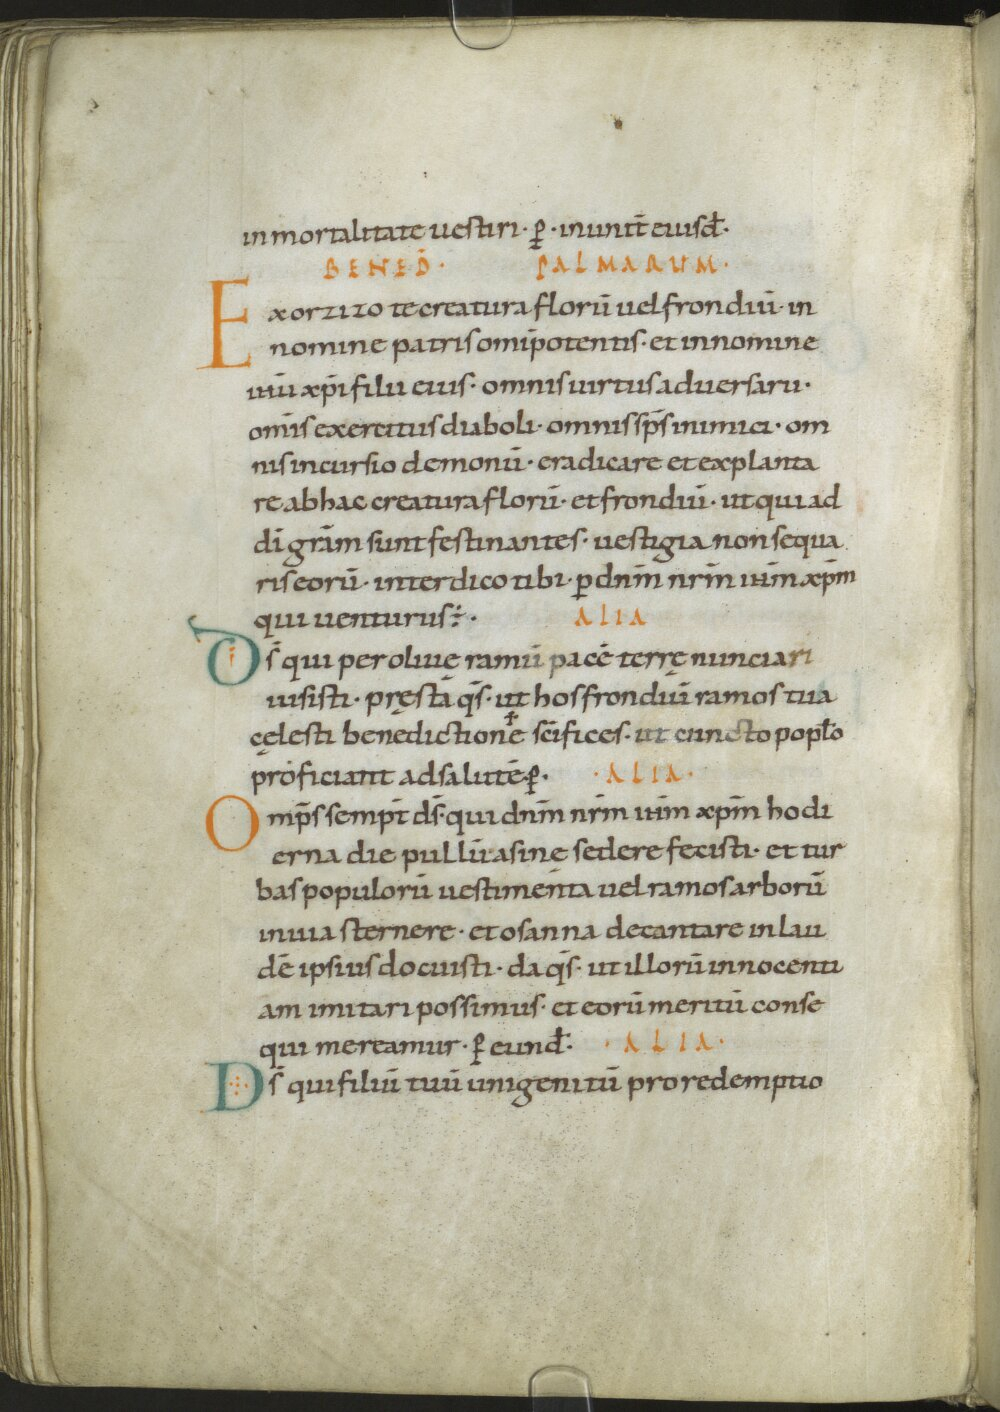 inmortalitate uestiri· ꝑ· inunit̄ eiusđ·
BENED̄· PALMARUM·
Exorzizo te creatura florū uel frondiū· in
nomine patris omīpotentis· et in nomine
ihū xp̄i filii eius· omnis uirtus aduersarii·
omīs exercitus diaboli· omnis sp̄s inimici· om
nis incursio demonū· eradicare et explanta
re ab hac creatura florū· et frondiū· ut qui ad
dī grām sunt festinantes· uestigia non sequa
ris eorū· interdico tibi· ꝑ dnm̄ nrm̄ ihm̄ xp̄m
qui uenturus ÷· ALIA
Ds̄ qui per oliuę ramū pacē terrę nunciari
iusisti· pręsta qs̄· ut hos frondiū ramos tua
cęlesti benedictione ✝ sc̄ifices· ut cuncto popƚo
proficiant ad salutē ꝑ· ·ALIA·
Omp̄s sempt̄ ds̄· qui dnm̄ nrm̄ ihm̄ xp̄m hodi
erna die pullū asine sedere fecisti· et tur
bas populorū uestimenta uel ramos arborū
in uia sternere· et osanna decantare in lau
dē ipsius docuisti· da qs̄· ut illorū innocenti
am imitari possimus· et eorū meritū conse
qui mereamur· ꝑ eunđ· ·ALIA·
Ds̄ qui filiū tuū unigenitū pro redemptio